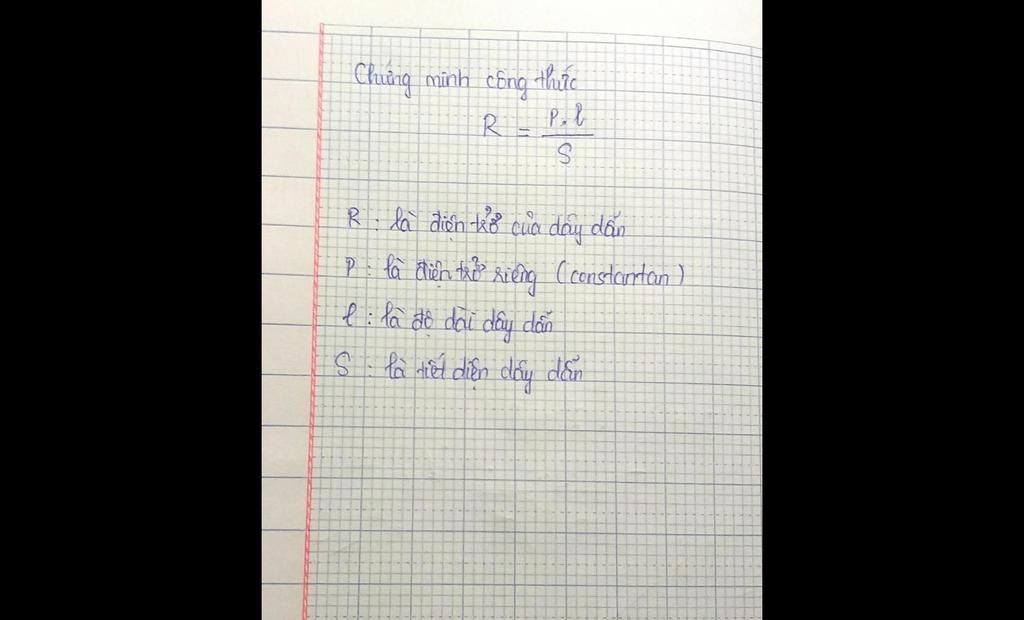 Chứng minh công thức
R = P.l
S
R : là điện trở của dây dẫn
P : là điện trở riêng (constantan)
l : là độ dài dây dẫn
S : là tiết diện dây dẫn